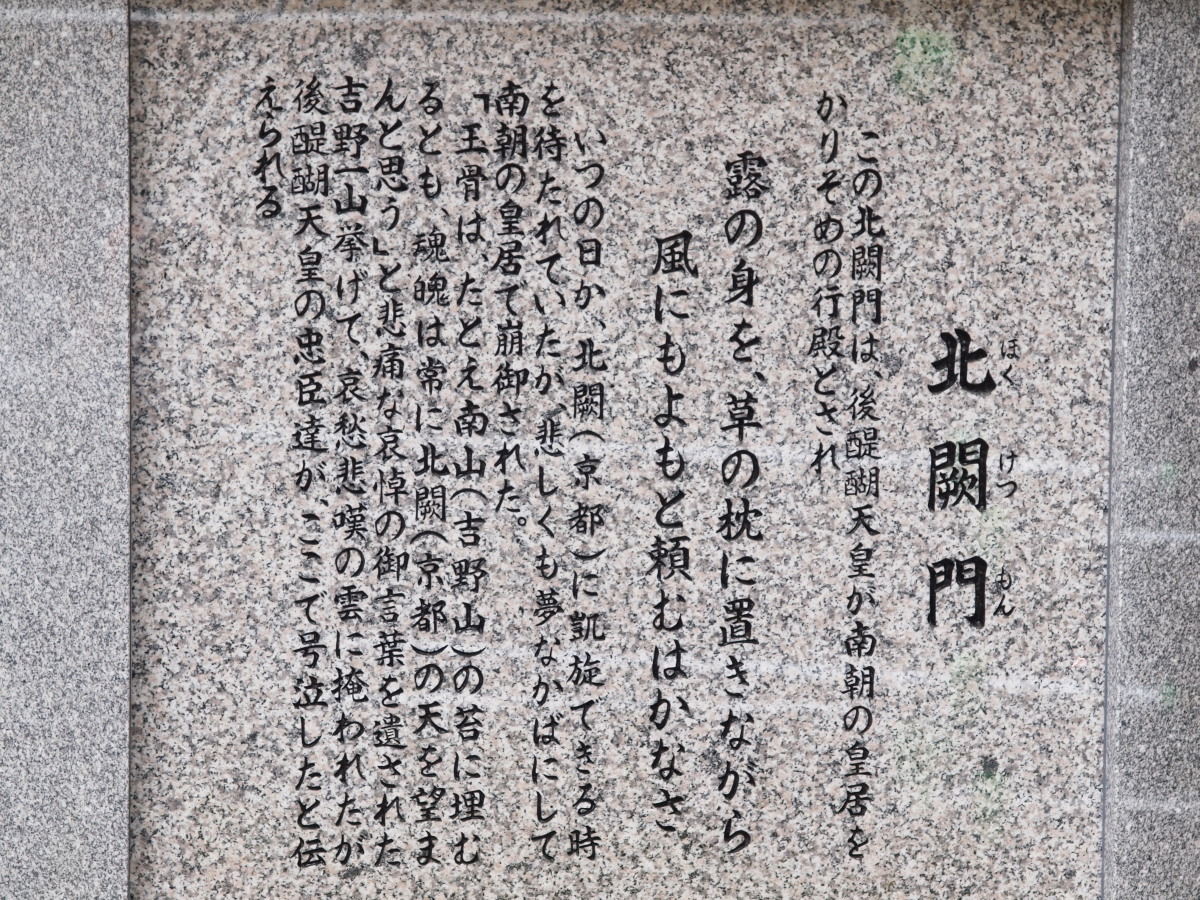 北闕門
ほくけつもん
この北闕門は、後醍醐天皇が南朝の皇居を
かりそめの行殿とされ
露の身を、草の枕に置きながら
風にもよもと頼むはかなさ
いつの日か、北闕(京都)に凱旋てきる時
を待たれていたが、悲しくも夢なかばにして
南朝の皇居で崩御された。
「王骨は、たとえ南山(吉野山)の苔に埋む
るとも、魂魄は常に北闕(京都)の天を望ま
んと思う」と悲痛な哀悼の御言葉を遺された
吉野一山挙げて、哀愁悲嘆の雲に掩われたが
後醍醐天皇の忠臣達が、ここで号泣したと伝
えられる